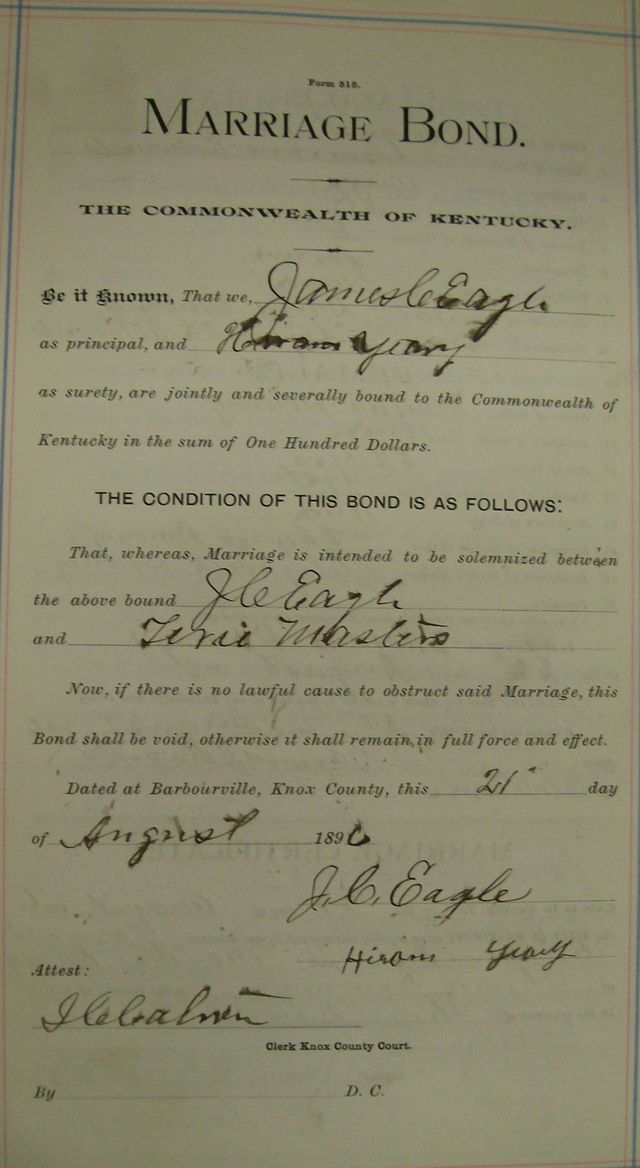 Form 515.
MARRIAGE BOND.
THE COMMONWEALTH OF KENTUCKY.
Be it Known, That we, James C Eagle
as principal, and Hiram Yeary
as surety, are jointly and severally bound to the Commonwealth of
Kentucky in the sum of One Hundred Dollars.
THE CONDITION OF THIS BOND IS AS FOLLOWS:
That, whereas, Marriage is intended to be solemnized between
the above bound J C Eagle
and Masters
Now, if there is no lawful cause to obstruct said Marriage, this
Bond shall be void, otherwise it shall remain in full force and effect.
Dated at Barbourville, Knox County, this 21 day
of August 1896
J. C. Eagle
Hiram Yeary
Attest:
Clerk Knox County Court.
By D. C.